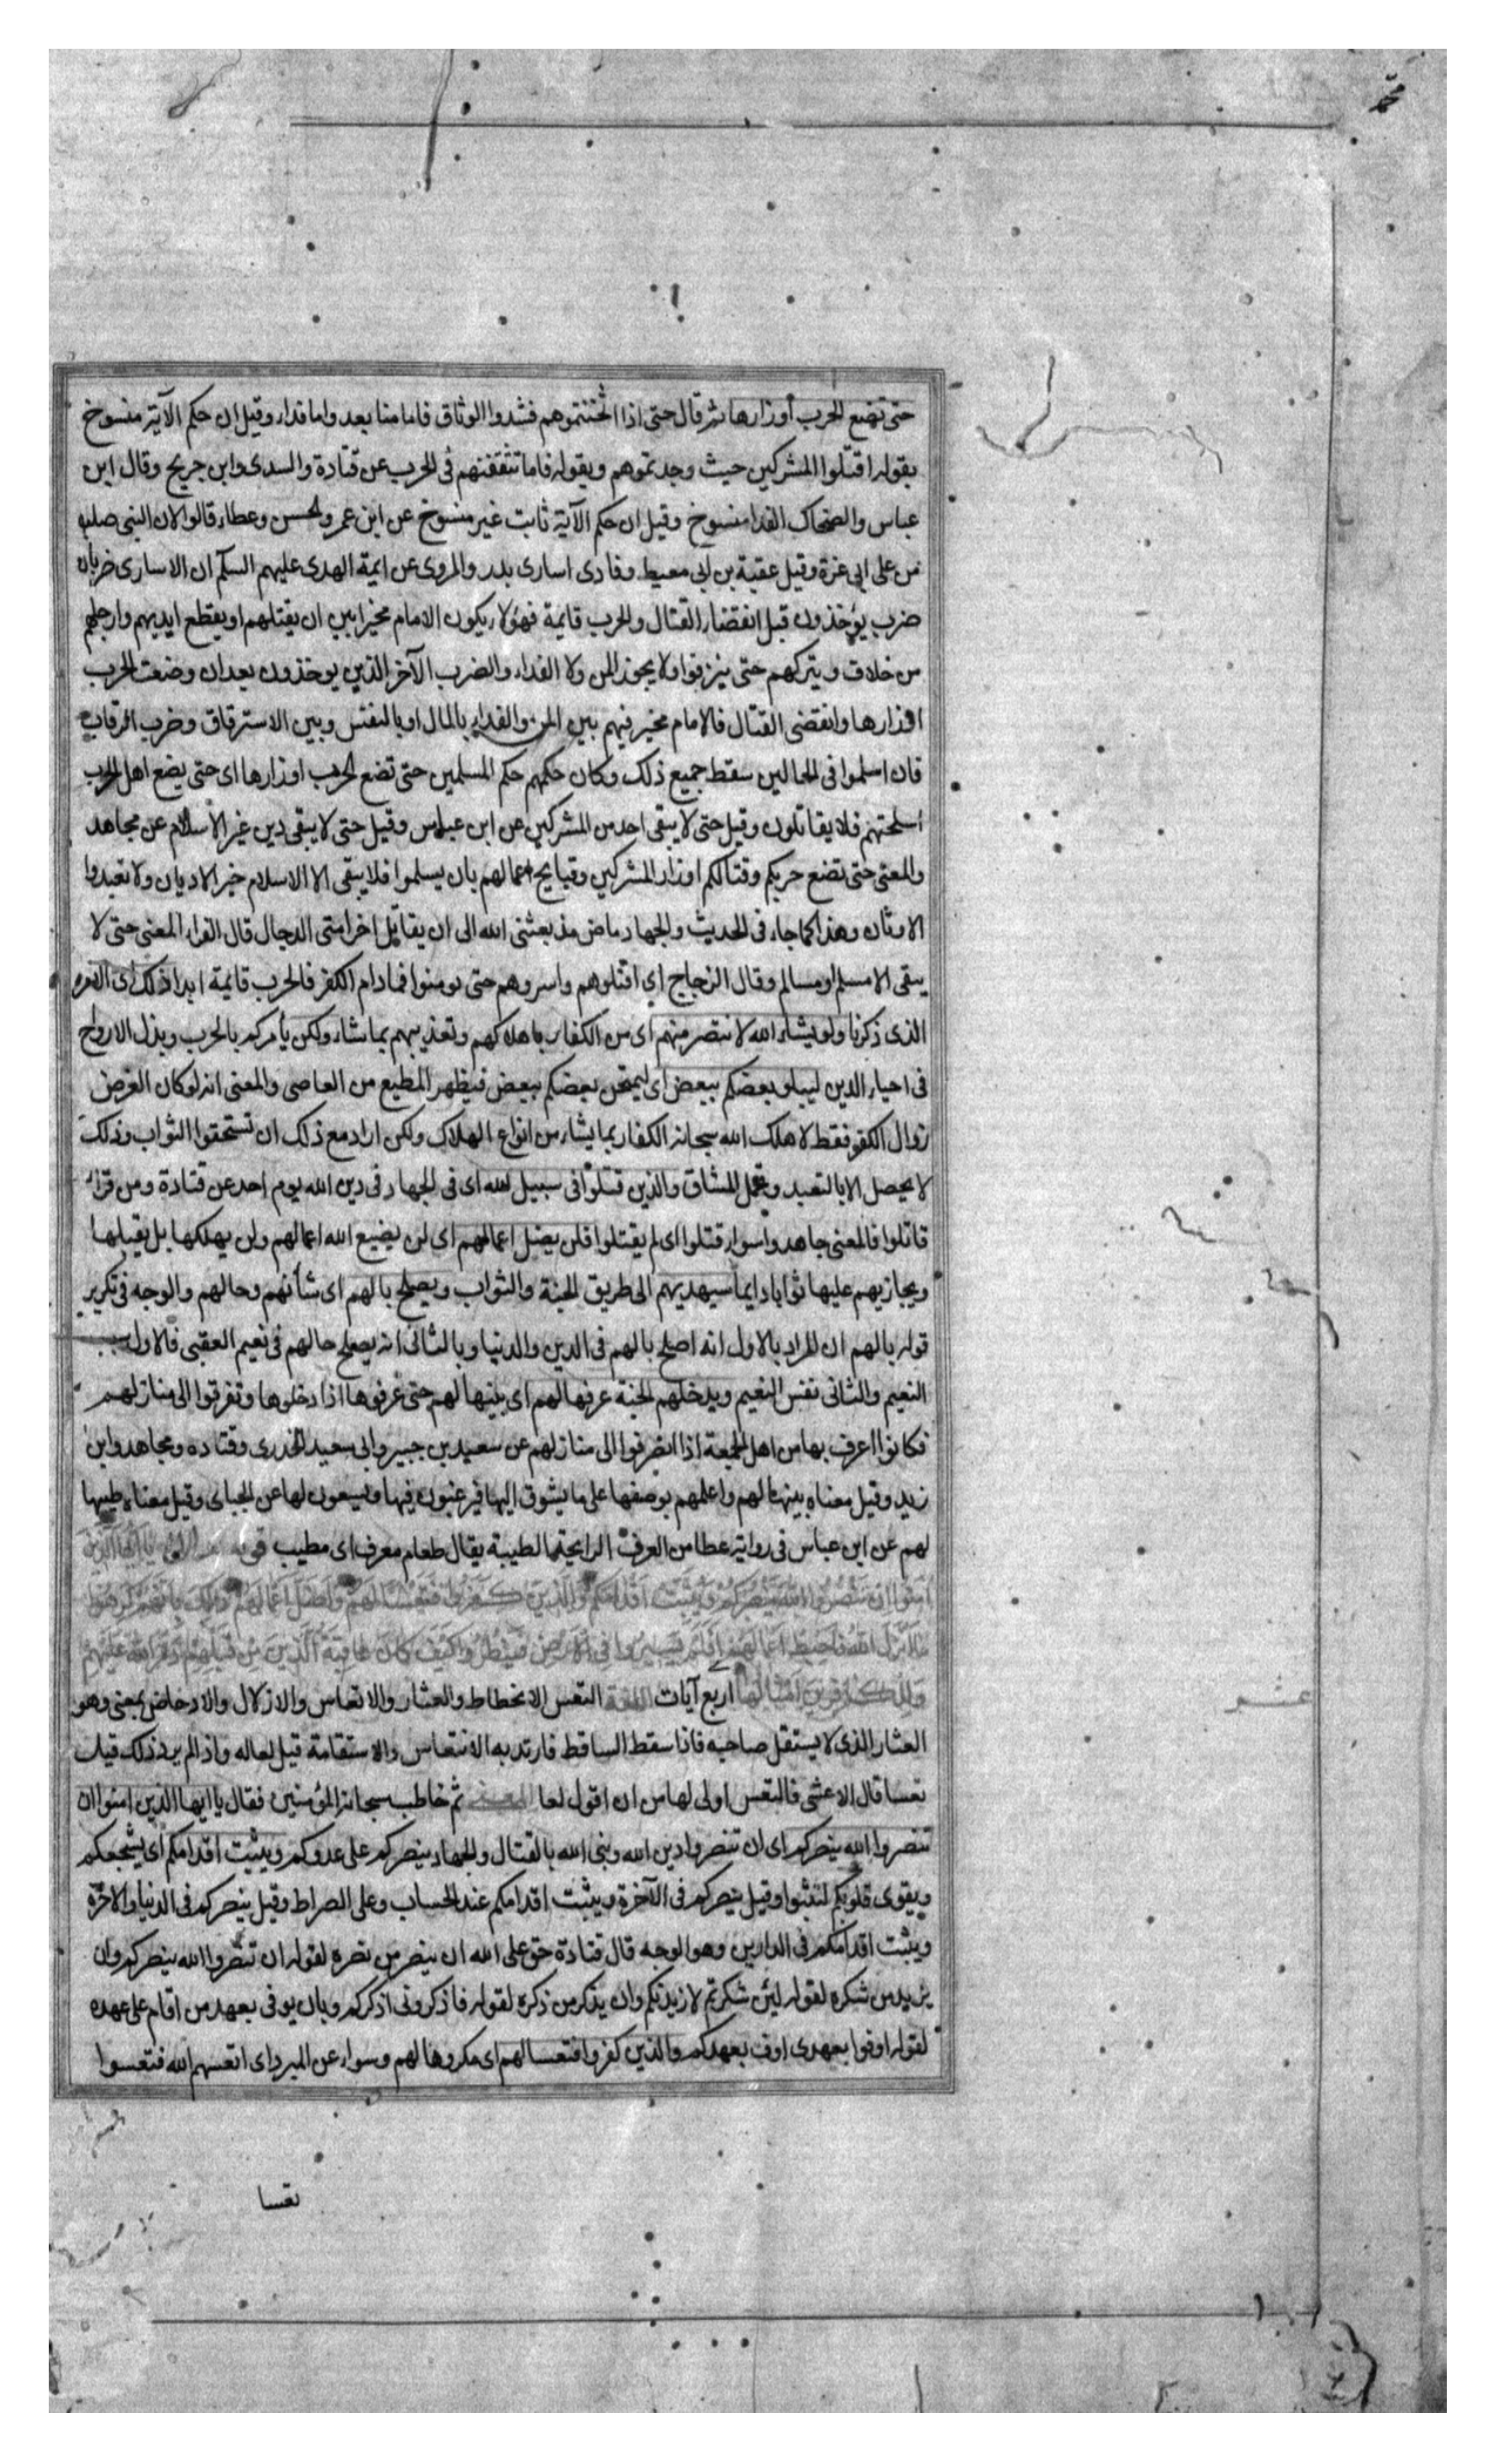 محمد
حتى تضع الحرب أوزارها ثم قال حتى اذا اثخنتموهم فشدوا الوثاق فاما منا بعد واما فداء وقيل ان حكم الآية منسوخ
بقوله اقتلوا المشركين حيث وجدتموهم وبقوله فاما تثقفنهم فى الحرب عن قتادة والسدى وابن جريج وقال ابن
عباس والضحاك الفدا منسوخ وقيل ان حكم الآية ثابت غير منسوخ عن ابن عمر والحسن وعطاء قالوا لان النبى صلى
من على ابى غرة وقيل عقبة بن ابى معيط وفادى اسارى بدر والمروى عن ايمة الهدى عليهم السلم ان الاسارى ضربان
ضرب يؤخذون قبل انقضاء القتال والحرب قايمة فهؤلاء يكون الامام مخيرا بين ان يقتلهم او يقطع ايديهم وارجلهم
من خلاف ويتركهم حتى ينزفوا ولا يجوز المن ولا الفداء والضرب الآخر الذين يوخذون بعد ان وضعت الحرب
اوزارها وانقضى القتال فالامام مخير فيهم بين المن والفداء بالمال او بالنفس وبين الاسترقاق وضرب الرقاب
فان اسلموا فى الحالين سقط جميع ذلك وكان حكمهم حكم المسلمين حتى تضع الحرب اوزارها اى حتى يضع اهل الحرب
اسلحتهم فلا يقاتلون وقيل حتى لا يبقى احد من المشركين عن ابن عباس وقيل حتى لا يبقى دين غير الاسلام عن مجاهد
والمعنى حتى تضع حربكم وقتالكم اوزار المشركين وقبايح اعمالهم بان يسلموا فلا يبقى الا الاسلام خير الاديان ولا تعبدوا
الاوثان وهذا كما جاء فى الحديث والجهاد ماض مذ بعثنى الله الى ان يقاتل اخر امتى الدجال قال الفراء المعنى حتى لا
يبقى الا مسلم او مسالم وقال الزجاج اي اقتلوهم واسروهم حتى يومنوا فما دام الكفر فالحرب قايمة ابدا ذلك اى الامر
الذى ذكرنا ولو يشاء الله لانتصر منهم اى من الكفار باهلاكهم وتعذيبهم بما شاء ولكن يأمركم بالحرب وبذل الارواح
فى احياء الدين ليبلو بعضكم ببعض اى ليمتحن بعضكم ببعض فيظهر المطيع من العاصى والمعنى انه لو كان الغرض
زوال الكفر فقط لاهلك الله سبحانه الكفار بما يشاء من انواع الهلاك ولكن اراد مع ذلك ان تستحقوا الثواب وذلك
لا يحصل الا بالتعبد وتحمل المشاق والذين قتلوا فى سبيل الله اى فى الجهاد فى دين الله يوم احد عن قتادة ومن قرأ
قاتلوا فالمعنى جاهدوا سواء قتلوا اى لم يقتلوا فلن يضل اعمالهم اى لن يضيع الله اعمالهم ولن يهلكها بل يقبلها
ويجازيهم عليها ثوابا دايما سيهديهم الى طريق الجنة والثواب ويصلح بالهم اى شأنهم وحالهم والوجه فى تكرير
قوله بالهم ان المراد بالاول انه اصلح بالهم فى الدين والدنيا وبالثانى انه يصلح حالهم فى نعيم العقبى فالاول سبب
النعيم والثانى نفس النعيم ويدخلهم الجنة عرفها لهم اى بينها لهم حتى عرفوها اذا دخلوها وتفرقوا الى منازلهم
فكانوا اعرف بها من اهل الجمعة اذا انصرفوا الى منازلهم عن سعيد بن جبير وابى سعيد الخدرى وقتاده ومجاهد وابن
زيد وقيل معناه بينها لهم واعلمهم بوصفها على ما يشوق اليها فيرغبون فيها ويسعون لها عن الجباى وقيل معناه طيبها
لهم عن ابن عباس فى رواية عطا من العرف الرايحة الطيبة يقال طعام معرف اى مطيب قوله يا ايها الذين
اٰمنوا ان تنصروا الله ينصركم ويثبت اقدامكم والذين كفروا فتعسا لهم واضل اعمالهم ذلك بانهم كرهوا
ما انزل الله فاحبط اعمالهم افلم يسيروا فى الارض فينظروا كيف كان عاقبة الذين من قبلهم دمر الله عليهم
وللكافرين امثالها اربع آيات اللغة التعس الانحطاط والعثار والاتعاس والازلال والادحاض بمعنى وهو
العثار الذى لا يستقل صاحبه فاذا سقط الساقط فارتد به الانتعاش والاستقامة قيل لعاله واذا لم يرد ذلك قيل
تعسا قال الاعشى فالتعس اولى لها من ان اقول لعا المعنى ثم خاطب سبحانه المؤمنين فقال يا ايها الذين امنوا ان
تنصروا الله ينصركم اى ان تنصروا دين الله ونبى الله بالقتال والجهاد ينصركم على عدوكم ويثبت اقدامكم اى يشجعكم
ويقوى قلوبكم لتثبتوا وقيل ينصركم فى الآخرة ويثبت اقدامكم عند الحساب وعلى الصراط وقيل ينصركم فى الدنيا والاخرة
ويثبت اقدامكم فى الدارين وهو الوجه قال قتادة حق على الله ان ينصر من نصره لقوله ان تنصروا الله ينصركم وان
يزيد من شكره لقوله لئن شكرتم لازيدنكم وان يذكر من ذكره لقوله فاذكرونى اذكركم وبان يوفى بعهد من اقام على عهده
لقوله اوفوا بعهدى اوف بعهدكم والذين كفروا فتعسا لهم اى مكروها لهم وسواء عن المبرد اى اتعسهم الله فتعسوا
عشر
تعسا